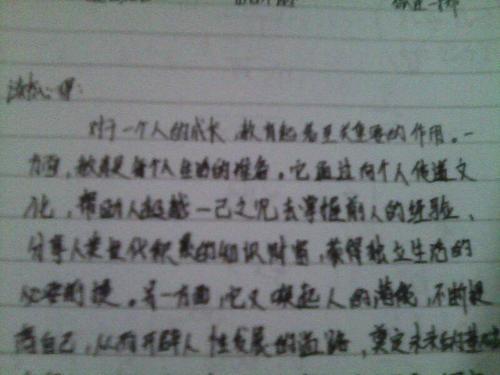 心理：
对于一个人的成长，教育起着至关重要的作用。一
方面，教育是每个人生活的准备。它通过向个人传递文
化，帮助人超越一己之见去掌握前人的经验，
分享人类世代积累的知识财富，获得独立生活的
必要前提。另一方面，它又唤起人的潜能，不断提
高自己，从而开辟人性发展的道路，奠定未来的基